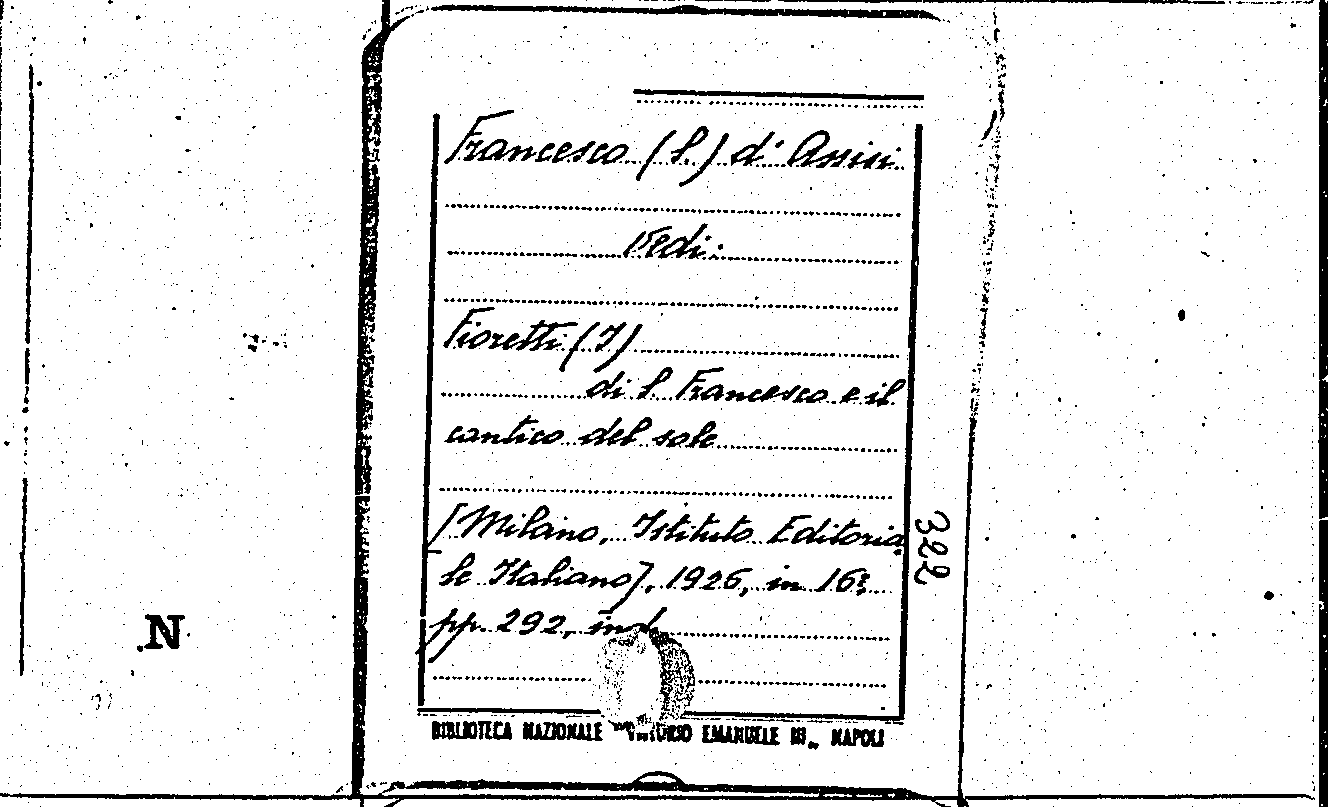 Francesco (S.) d'Assisi
Vedi:
Fioretti (I)
di S. Francesco e il
cantico del sole
[Milano, Istituto Editoria
le Italiano], 1926, in 16º
pp. 292, ind.
322
N
BIBLIOTECA NAZIONALE "VITTORIO EMANUELE III" NAPOLI